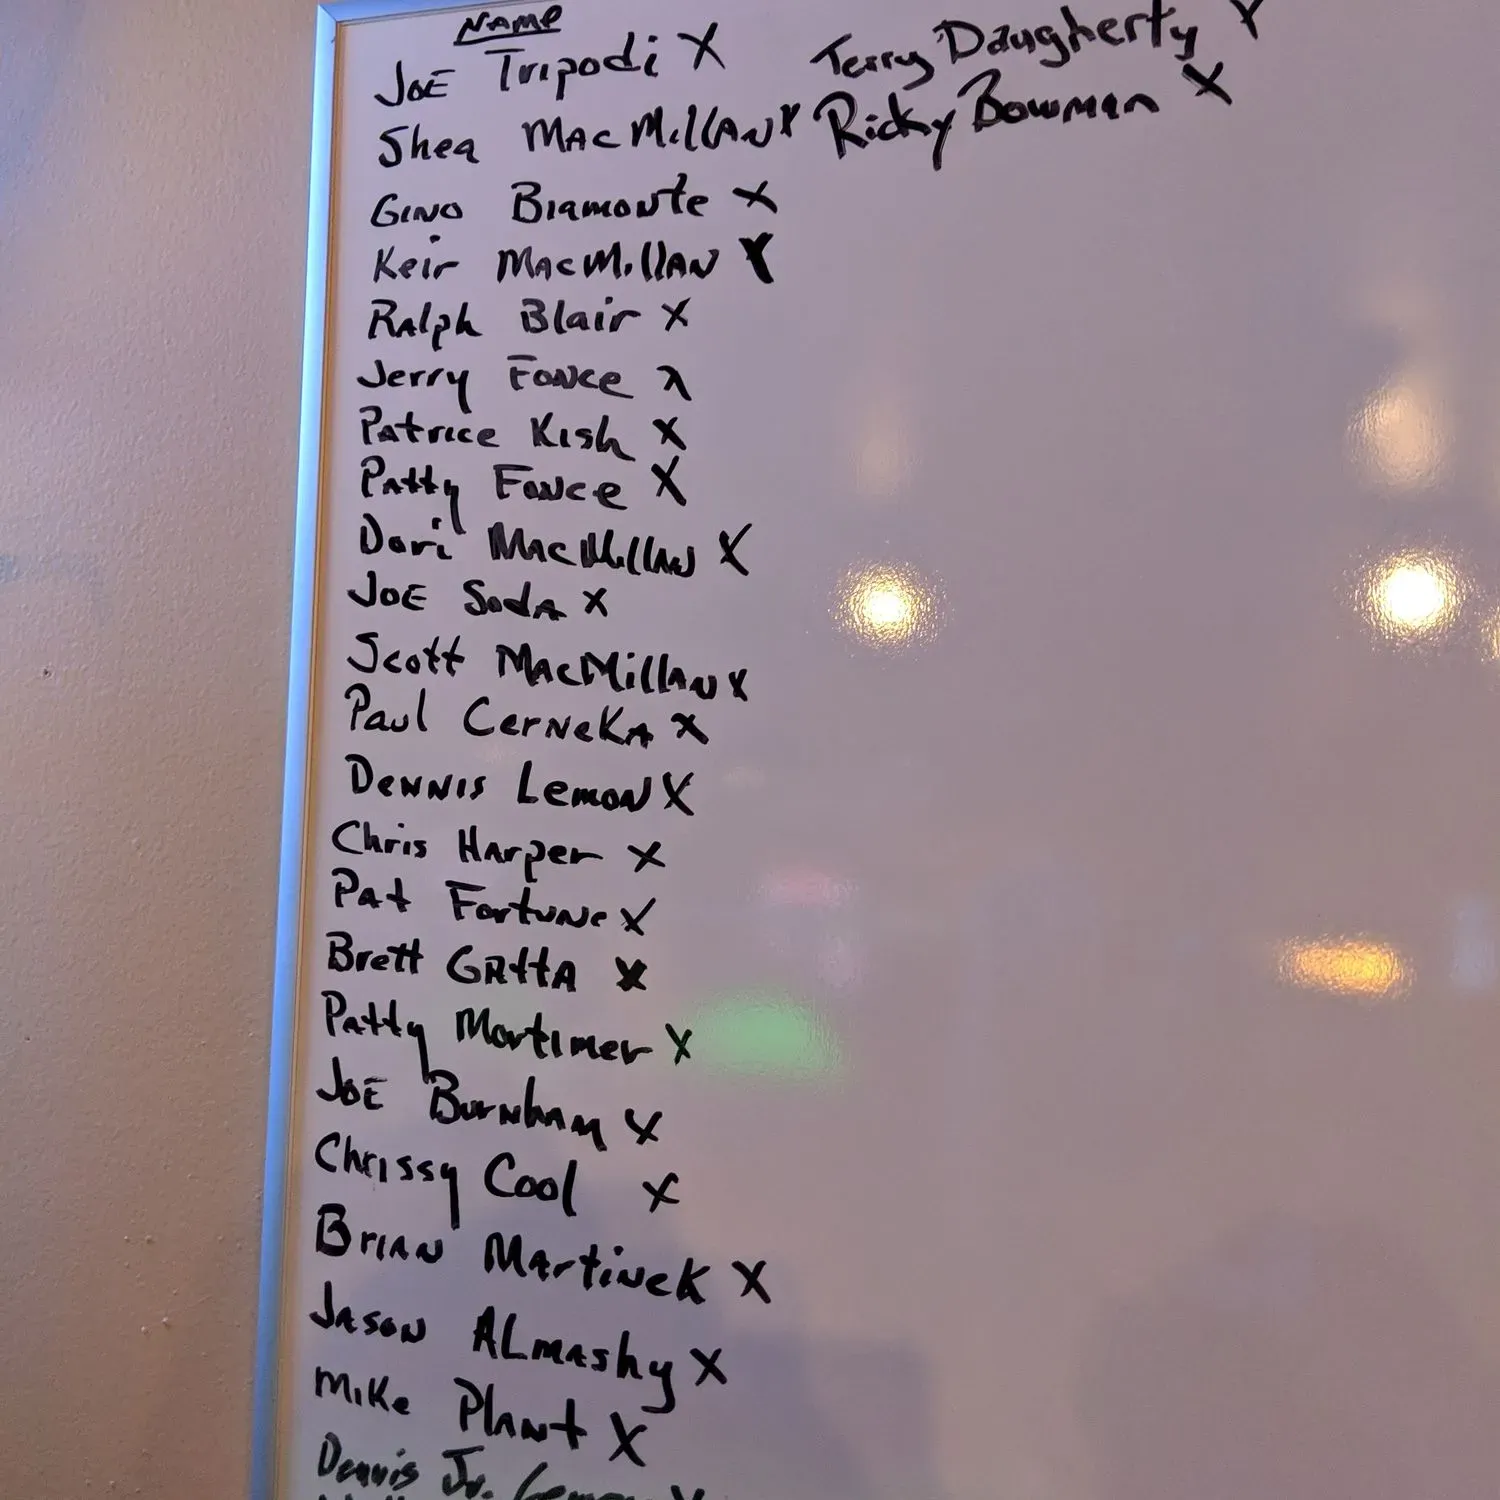 NAME
JOE Tripodi X
Shea MacMillan X
Gino Biamonte X
Keir MacMillan X
Ralph Blair X
Jerry Fonce X
Patrice Kish X
Patty Fonce X
Dori MacMillan X
JOE Soda X
Scott MacMillan X
Paul Cerneka X
Dennis Lemon X
Chris Harper X
Pat Fortune X
Brett Gatta X
Patty Mortimer X
JOE Burnham X
Chrissy Cool X
Brian Martinek X
Jason Almashy X
Mike Plant X
Dennis Jr. Lemon X
Terry Daugherty X
Ricky Bowman X